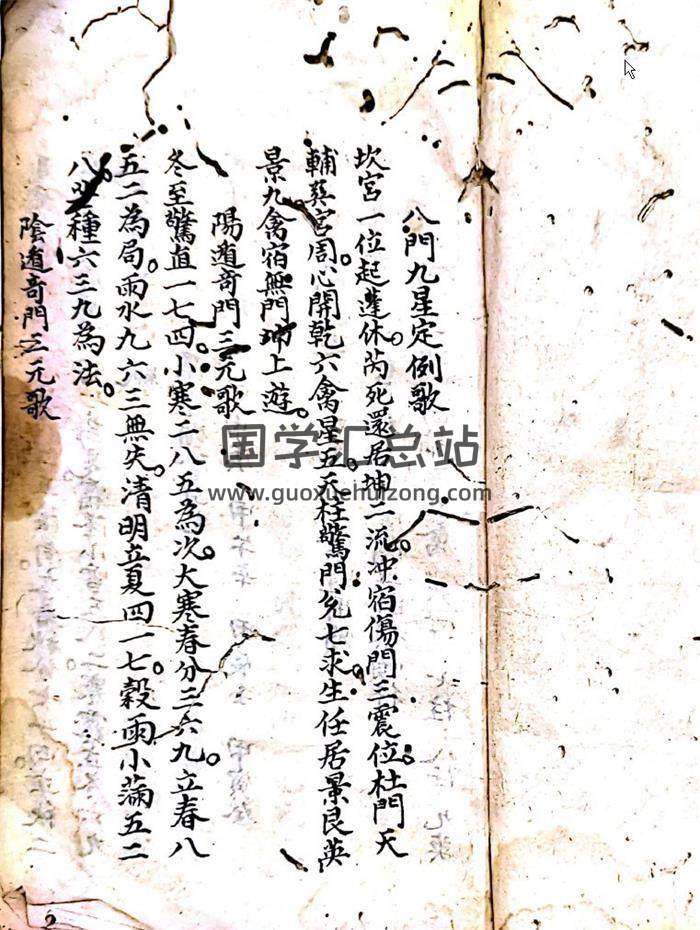 八門九星定例歌
坎宮一位起蓬休。芮死還居坤二流。冲宿傷門三震位。杜門天
輔巽宮周。心開乾六禽星五。天柱驚門兌七求。生任居景艮英
景九禽宿無門坤上遊。
陽遁奇門三元歌
冬至驚直一七四。小寒二八五為次。大寒春分三六九。立春八
五二為局。雨水九六三無失。清明立夏四一七。穀雨小滿五二
八。種六三九為法。
陰遁奇門三元歌
国学汇总站
www.guoxuehuizong.com
2